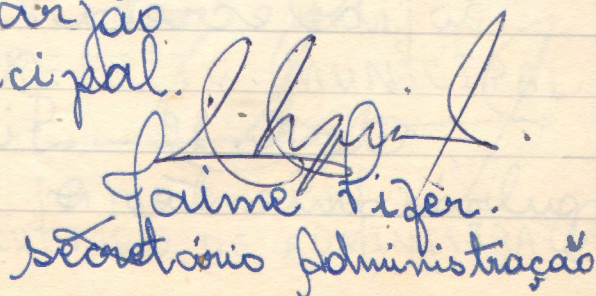 arjão
cipal.
Jaime Pifer.
secretário Administração